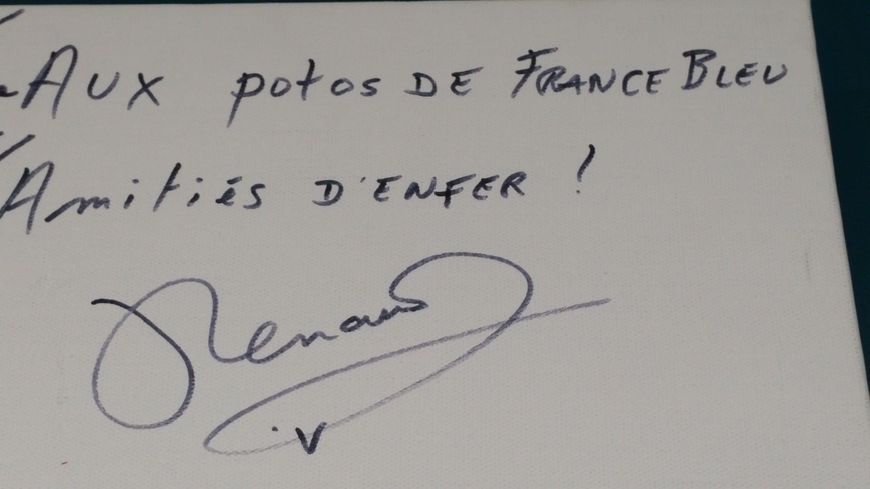 Aux potos DE FRANCE BLEU
Amitiés D'ENFER !
Renaud